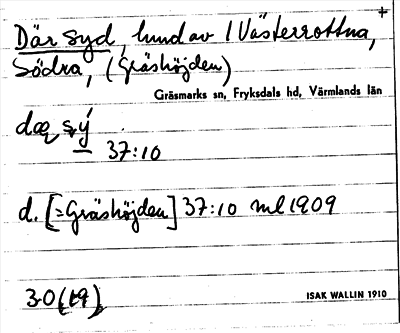 Där syd, hund av 1 Västerrottna,
Södra, (Gräshöjden)
Gräsmarks sn, Fryksdals hd, Värmlands län
dæ sý
37:10
d. [=Gräshöjden] 37:10 ml 1909
30 (t9)
ISAK WALLIN 1910